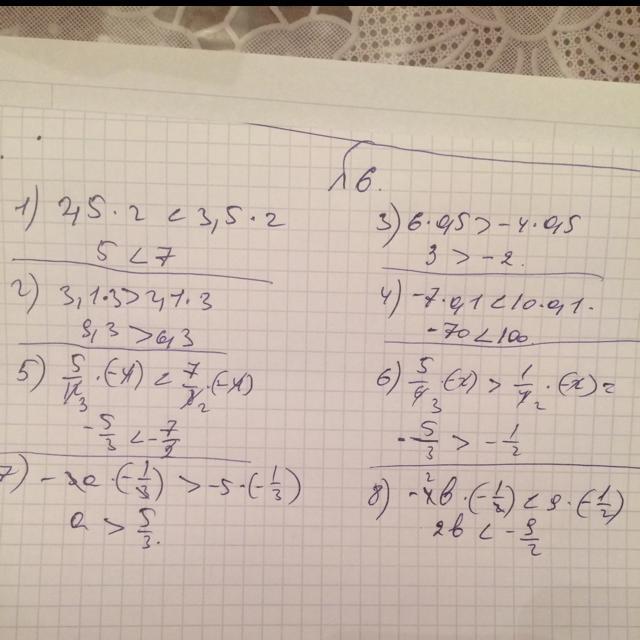 №6.
1) 2,5 · 2 < 3,5 · 2
5 < 7
2) 3,1·3 > 2,1·3
9,3 > 6,3
5) 5/12 3 · (-4) < 7/8 2 · (-4)
-5/3 < -7/2
7) -3a · (-1/3) > -5 · (-1/3)
a > 5/3.
3) 6 · 0,5 > -4 · 0,5
3 > -2.
4) -7 · 0,1 < 10 · 0,1.
-70 < 100
-5/3 > -1/2
8) -4b 2 · (-1/2) < 9 · (-1/2)
2b < -9/2